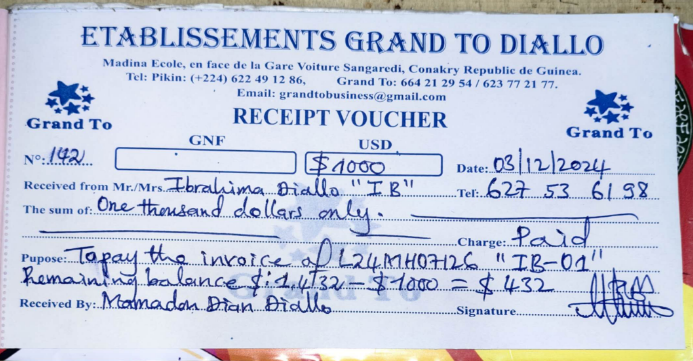 ETABLISSEMENTS GRAND TO DIALLO
Madina Ecole, en face de la Gare Voiture Sangaredi, Conakry Republic de Guinea.
Tel: Pikin: (+224) 622 49 12 86, Grand To: 664 21 29 54 / 623 77 21 77.
Email: grandtobusiness@gmail.com
Grand To RECEIPT VOUCHER Grand To
GNF USD
N°: 142 $ 1000 Date: 03/12/2024
Received from Mr./Mrs. Ibrahima Diallo "IB" Tel: 627 53 61 98
The sum of: One thousand dollars only.
Charge: Paid
Pupose: Tapay the invoice of L24MH07126 "IB-01"
Remaining balance $: 1,432 - $1000 = $ 432
Grand To
Received By: Mamadou Dian Diallo Signature